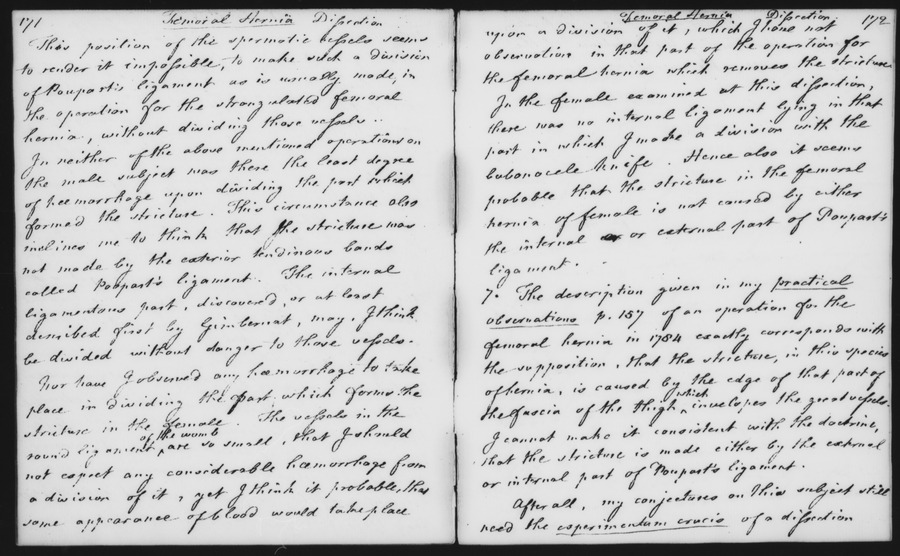 171 Femoral Hernia Dissection
This position of the spermatic vessels seems
to render it impossible, to make such a division
of Poupart's ligament as is usually made, in
the operation for the strangulated femoral
hernia, without dividing those vessels.
In neither of the above mentioned operations on
the male subject was there the least degree
of hœmorrhage upon dividing the part which
formed the stricture. This circumstance also
inclines me to think that the stricture was
not made by the exterior tendinous bands
called Poupart's ligament. The internal
ligamentous part, discovered, or at least
described first by Gimbernat, may, I think,
be divided without danger to those vessels.
Nor have I observed any hœmorrhage to take
place in dividing the part which forms the
stricture in the female. The vessels in the
round ligament of the womb are so small, that I should
not expect any considerable hœmorrhage from
a division of it, yet I think it probable, that
some appearance of blood would take place
Femoral Hernia Dissection 172
upon a division of it, which I have not
observation in that part of the operation for
the femoral hernia which removes the stricture
In the female examined at this dissection,
there was no internal ligament lying in that
part in which I made a division with the
bubonocele knife. Hence also it seems
probable that the stricture in the femoral
hernia of female is not caused by either
the internal or external part of Poupart's
ligament.
7. The description given in my practical
observations p. 187 of an operation for the
femoral hernia in 1784 exactly corresponds with
the supposition, that the stricture, in this species
of hernia, is caused by the edge of that part of
the fascia of the thigh which invelopes the great vessels.
I cannot make it consistent with the doctrine,
that the stricture is made either by the external
or internal part of Poupart's ligament.
After all, my conjectures on this subject still
need the experimentum crucis of a dissection